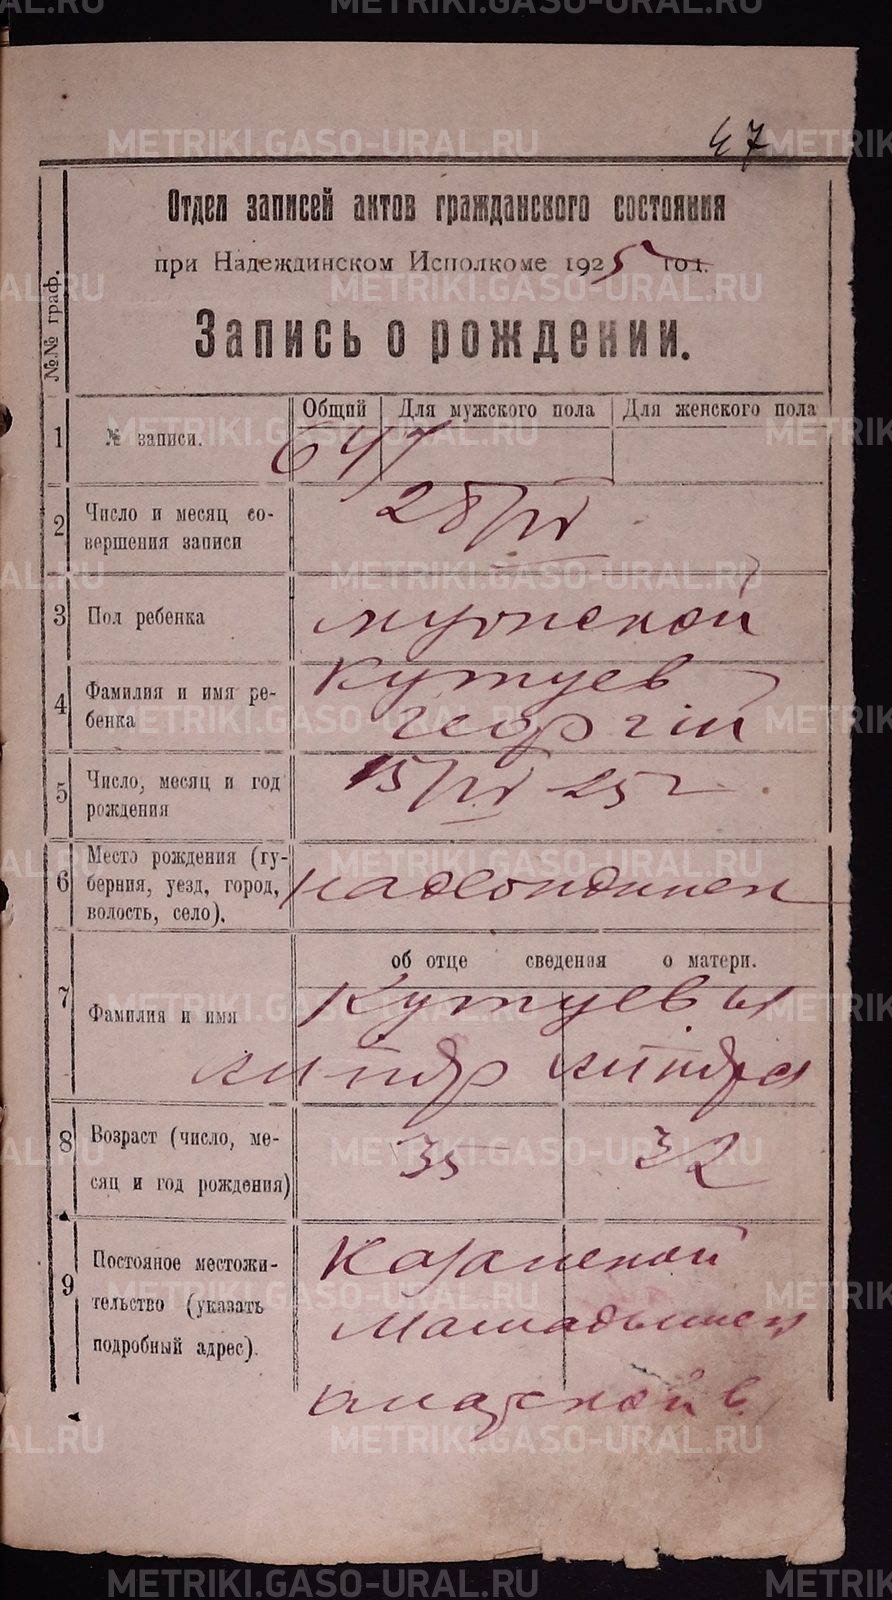 METRIKI.GASO-URAL.RU
47
Отдел записей актов гражданского состояния
при Надеждинском Исполкоме 1925 год.
Запись о рождении.
№№ граф.
Общий Для мужского пола Для женского пола
1 № записи. 647
2 Число и месяц со-
вершения записи
28/IV
3 Пол ребенка мужской
4 Фамилия и имя ре-
бенка
Кутуев
Георгій
5 Число, месяц и год
рождения
15/IV 25 г.
6 Место рождения (гу-
берния, уезд, город,
волость, село).
Надеждинск
об отце сведения о матери.
7 Фамилия и имя
Кутуевы
8 Возраст (число, ме-
сяц и год рождения)
35 32
9 Постояное местожи-
тельство (указать
подробный адрес).
Казанской
Мамадышск